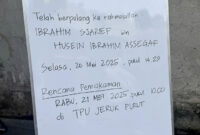 Telah berpulang ke rahmatullah
IBRAHIM SJARIEF bin
HUSEIN IBRAHIM ASSEGAF
Selasa, 20 Mei 2025, pukul
Rencana Pemakaman
RABU, 21 MEI 2025, pukul 10.00
di TPU JERUK PURUT